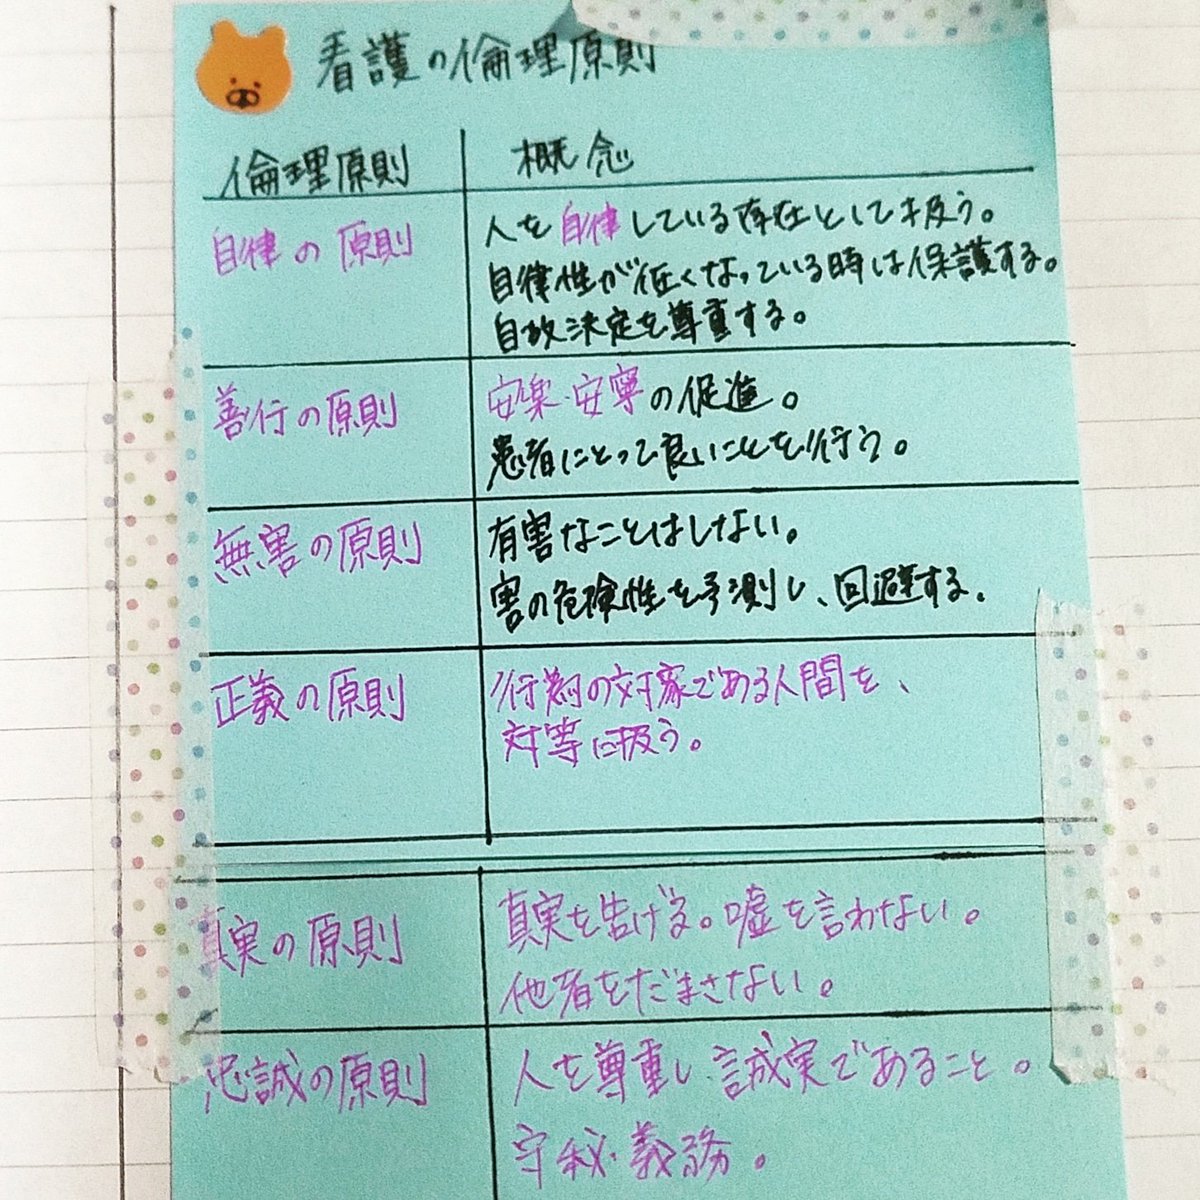 看護の倫理原則
倫理原則 概念
自律の原則 人を自律している存在として扱う。
自律性が低くなっている時は保護する。
自故決定を尊重する。
善行の原則 安楽・安寧の促進。
患者にとって良いことを行う。
無害の原則 有害なことはしない。
害の危険性を予測し、回避する。
正義の原則 行為の対象である人間を、
対等に扱う。
真実の原則 真実を告げる。嘘を言わない。
他者をだまさない。
忠誠の原則 人を尊重し誠実であること。
守秘・義務。